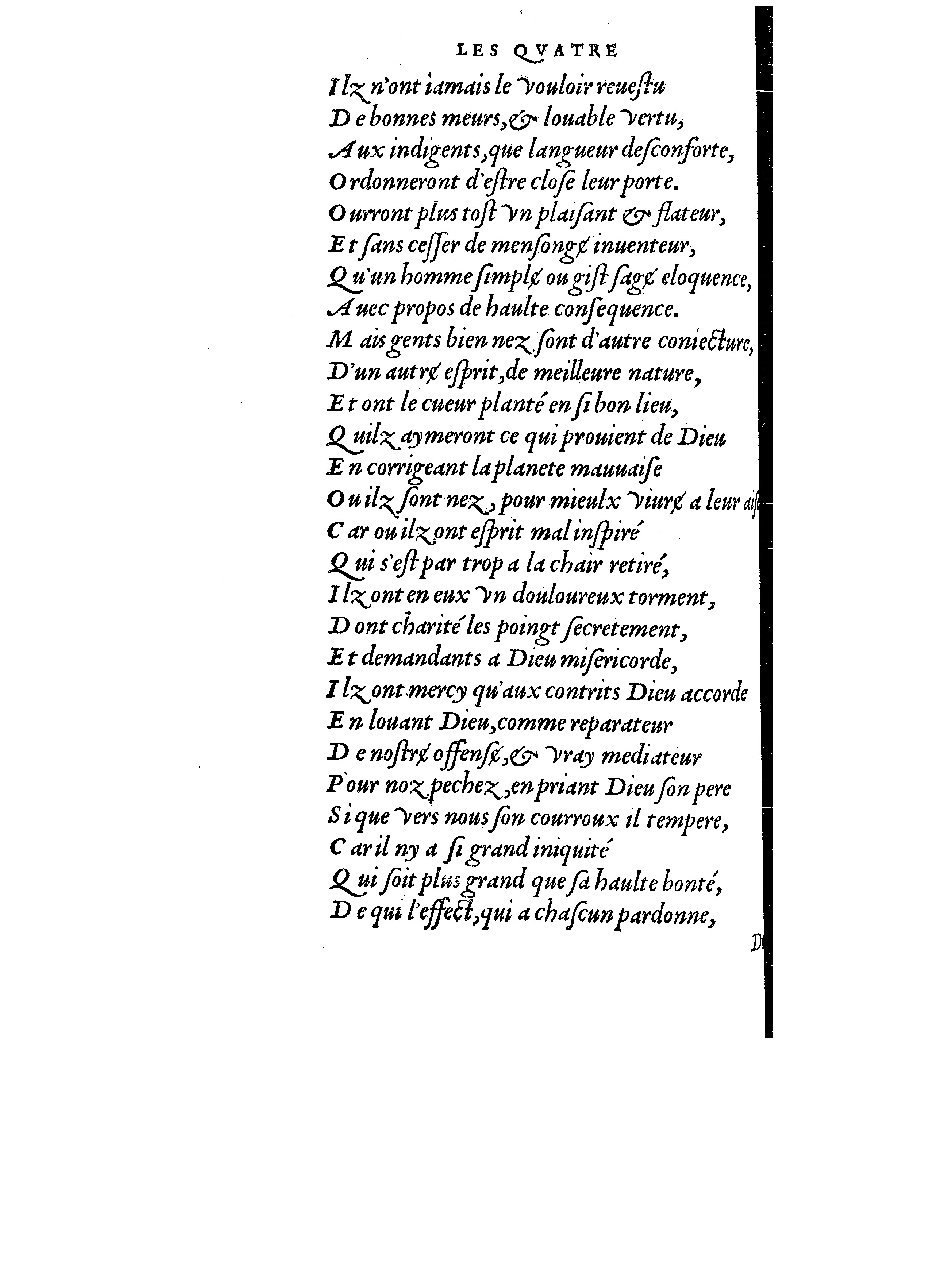 LES QVATRE
Ilz n'ont iamais le vouloir reueſtu
De bonnes meurs, & louable vertu,
Aux indigents, que langueur deſconforte,
Ordonneront d'eſtre cloſe leur porte.
Ourront plus toſt vn plaiſant & flateur,
Et ſans ceſſer de menſongɇ inuenteur,
Qu'un homme ſimplɇ ou giſt ſagɇ eloquence,
Auec propos de haulte conſequence.
Mais gents bien nez ſont d'autre coniecture,
D'un autrɇ eſprit, de meilleure nature,
Et ont le cueur planté en ſi bon lieu,
Quilz aymeront ce qui prouient de Dieu
En corrigeant la planete mauuaiſe
Ou ilz ſont nez, pour mieulx viurɇ a leur aiſ
Car ou ilz ont eſprit mal inſpiré
Qui s'eſt par trop a la chair retiré,
Ilz ont en eux vn douloureux torment,
Dont charité les poingt ſecretement,
Et demandants a Dieu miſericorde,
Ilz ont mercy qu'aux contrits Dieu accorde
En louant Dieu, comme reparateur
De noſtrɇ offenſɇ, & vray mediateur
Pour noz pechez, en priant Dieu ſon pere
Si que vers nous ſon courroux il tempere,
Car il ny a ſi grand iniquité
Qui ſoit plus grand que ſa haulte bonté,
De qui l'effect, qui a chaſcun pardonne,
D